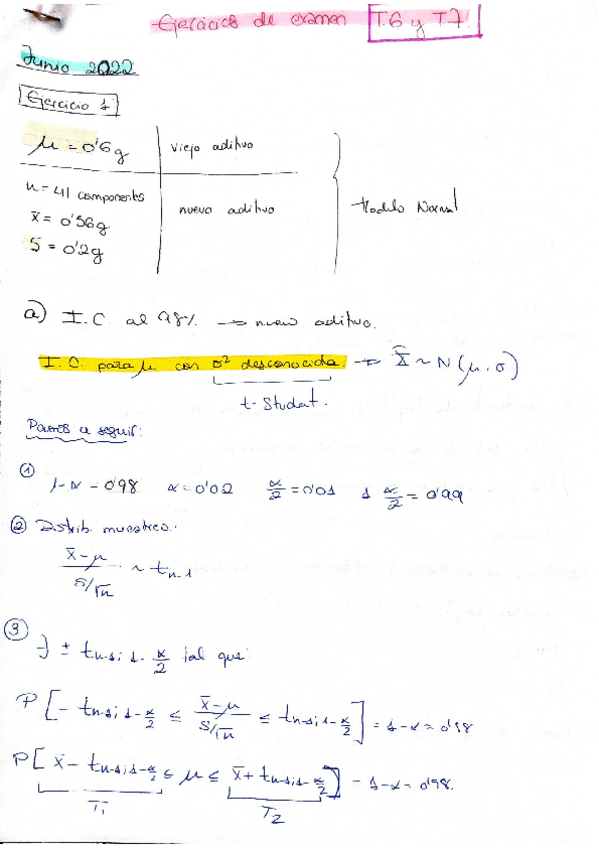 Ejercicios de examen T.6 y T7.
Junio 2022
Ejercicio 1
μ = 0'6g viejo aditivo
n = 41 componentes
x̄ = 0'56g nuevo aditivo Modelo Normal
S = 0'2g
a) I.C. al 98% → nuevo aditivo.
I.C. para μ con σ² desconocida. → X ~ N(μ, σ)
t-Student.
Pasos a seguir:
① 1-α = 0'98 α = 0'02 α/2 = 0'01 1-α/2 = 0'99
② Distrib. muestreo.
(x̄-μ)/(S/√n) ~ t n-1
③ ∃ ± t n-1; 1-α/2 tal que:
P[- t n-1; 1-α/2 ≤ (x̄-μ)/(S/√n) ≤ t n-1; 1-α/2] = 1-α = 0'98
P[x̄ - t n-1; 1-α/2 ≤ μ ≤ x̄ + t n-1; 1-α/2] = 1-α = 0'98.
T₁ T₂